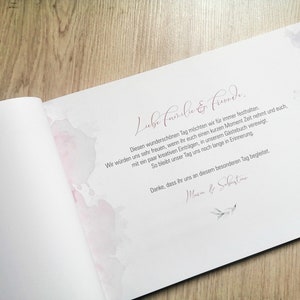 Liebe Familie & Freunde,
Diesen wunderschönen Tag möchten wir für immer festhalten.
Wir würden uns sehr freuen, wenn ihr euch einen kurzen Moment Zeit nehmt und euch,
mit ein paar kreativen Einträgen, in unserem Gästebuch verewigt.
So bleibt unser Tag uns noch lange in Erinnerung.
Danke, dass ihr uns an diesem besonderen Tag begleitet.
& Sebastian